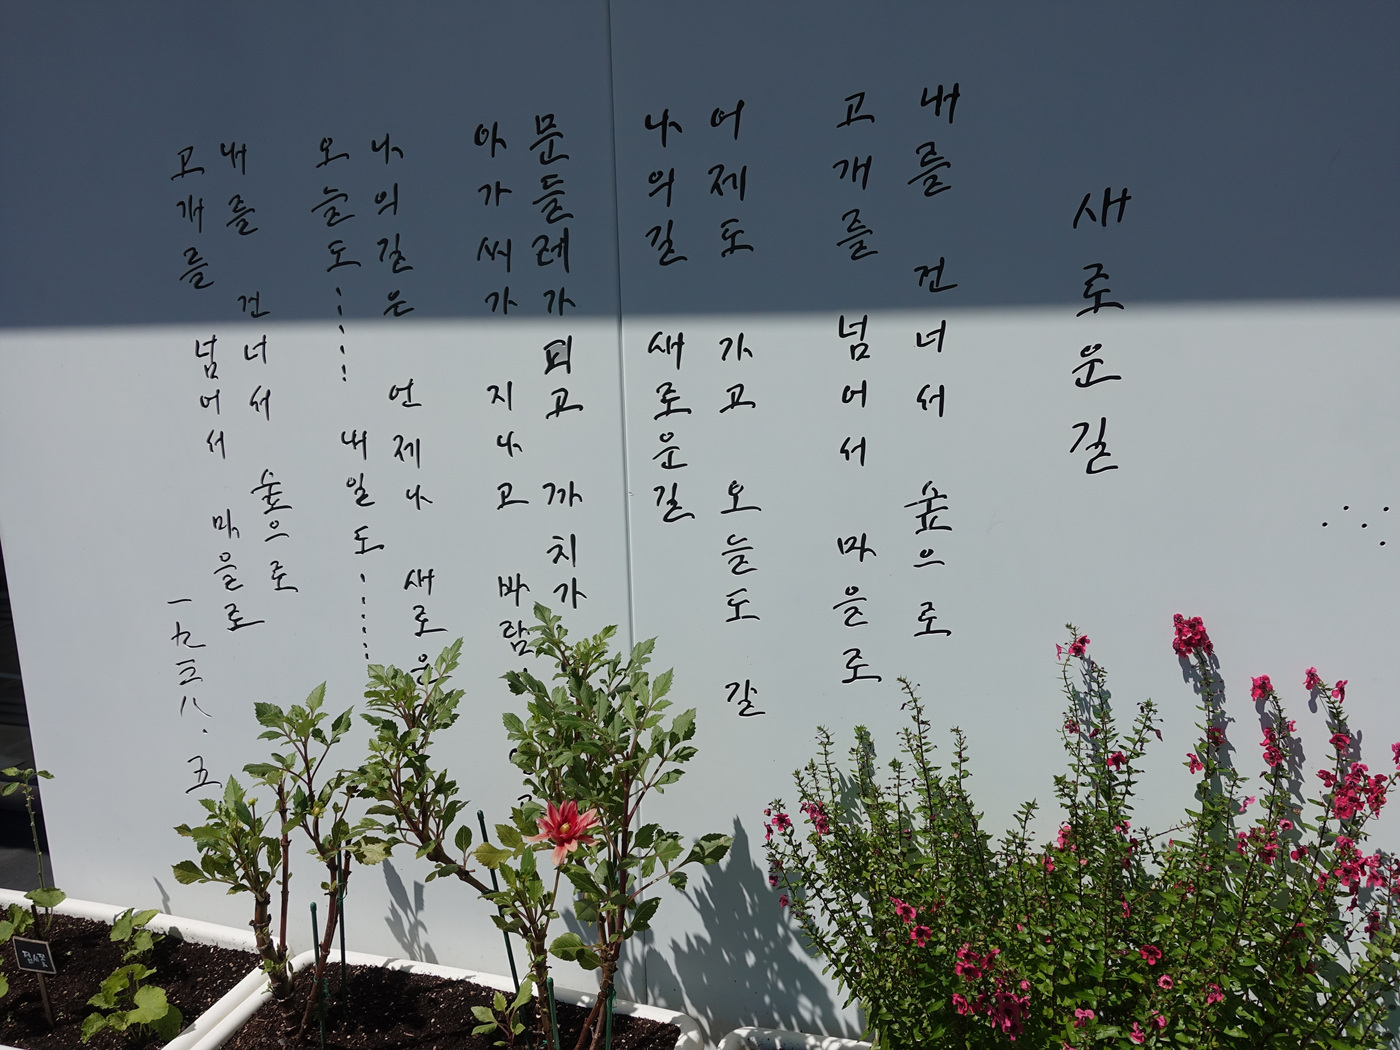 새로운길
내를 건너서 숲으로
고개를 넘어서 마을로
어제도 가고 오늘도 갈
나의길 새로운길
문들레가피고 까치가
아가씨가 지나고 바람
나의길은 언제나 새로운
오늘도…… 내일도……
내를 건너서 숲으로
고개를 넘어서 마을로
一九三八.五